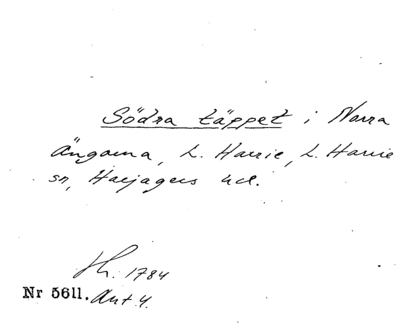 Södra täppet i Norra
Ängarna, L. Harrie, L. Harrie
sn, Harjagers hd.
Sh. 1784
Nr 5611. Akt 4.